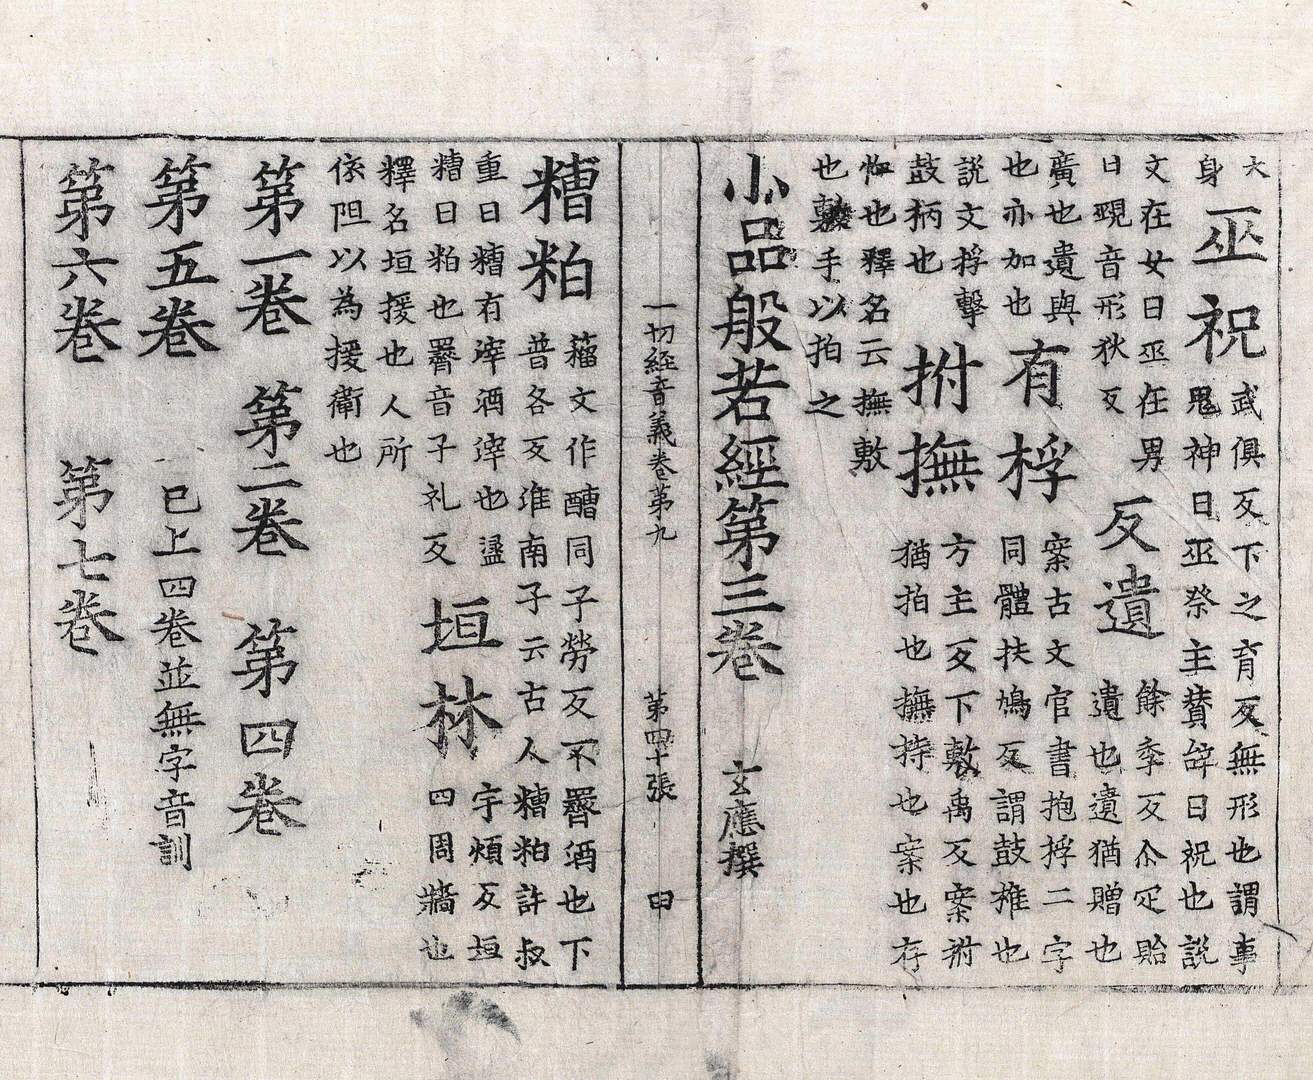 大
身
巫祝
武俱反下之育反無形也謂事
鬼神曰巫祭主賛辞曰祝也說
文在女曰巫在男
曰覡音形狄反
反遺
餘季反尒疋貽
遺也遺猶贈也
廣也遺與
也亦加也
有桴
案古文官書抱捊二字
同體扶鳩反謂鼓椎也
說文捊擊
鼓柄也
拊撫
方主反下敷禹反案拊
猶拍也撫持也案也存
恤也釋名云撫敷
也敷手以拍之
小品般若經第三卷 玄應撰
一切經音義卷第九 第四十張
糟粕
籀文作醩同子勞反不罯酒也下
普各反淮南子云古人糟粕許叔
重曰糟有滓酒滓也盪
糟曰粕也罯音子礼反
垣林
宇煩反垣
四周牆也
釋名垣援也人所
依阻以為援衛也
第一卷 第二卷 第四卷
第五卷 已上四卷並無字音訓
第六卷 第七卷